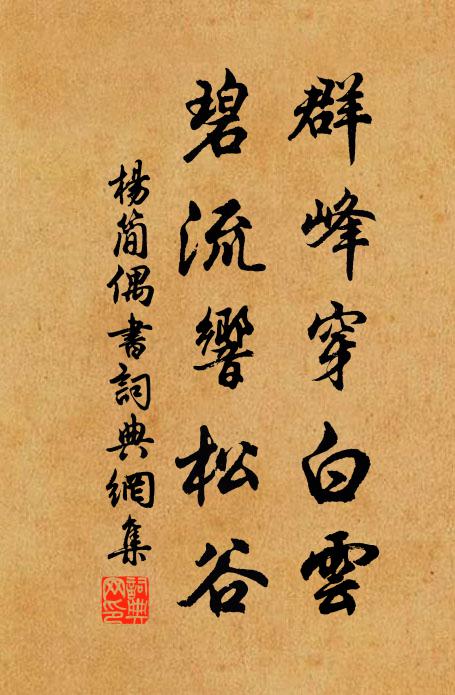 群峰穿白雲
碧流響松谷
楊簡偶書詞典網集
詞典網印